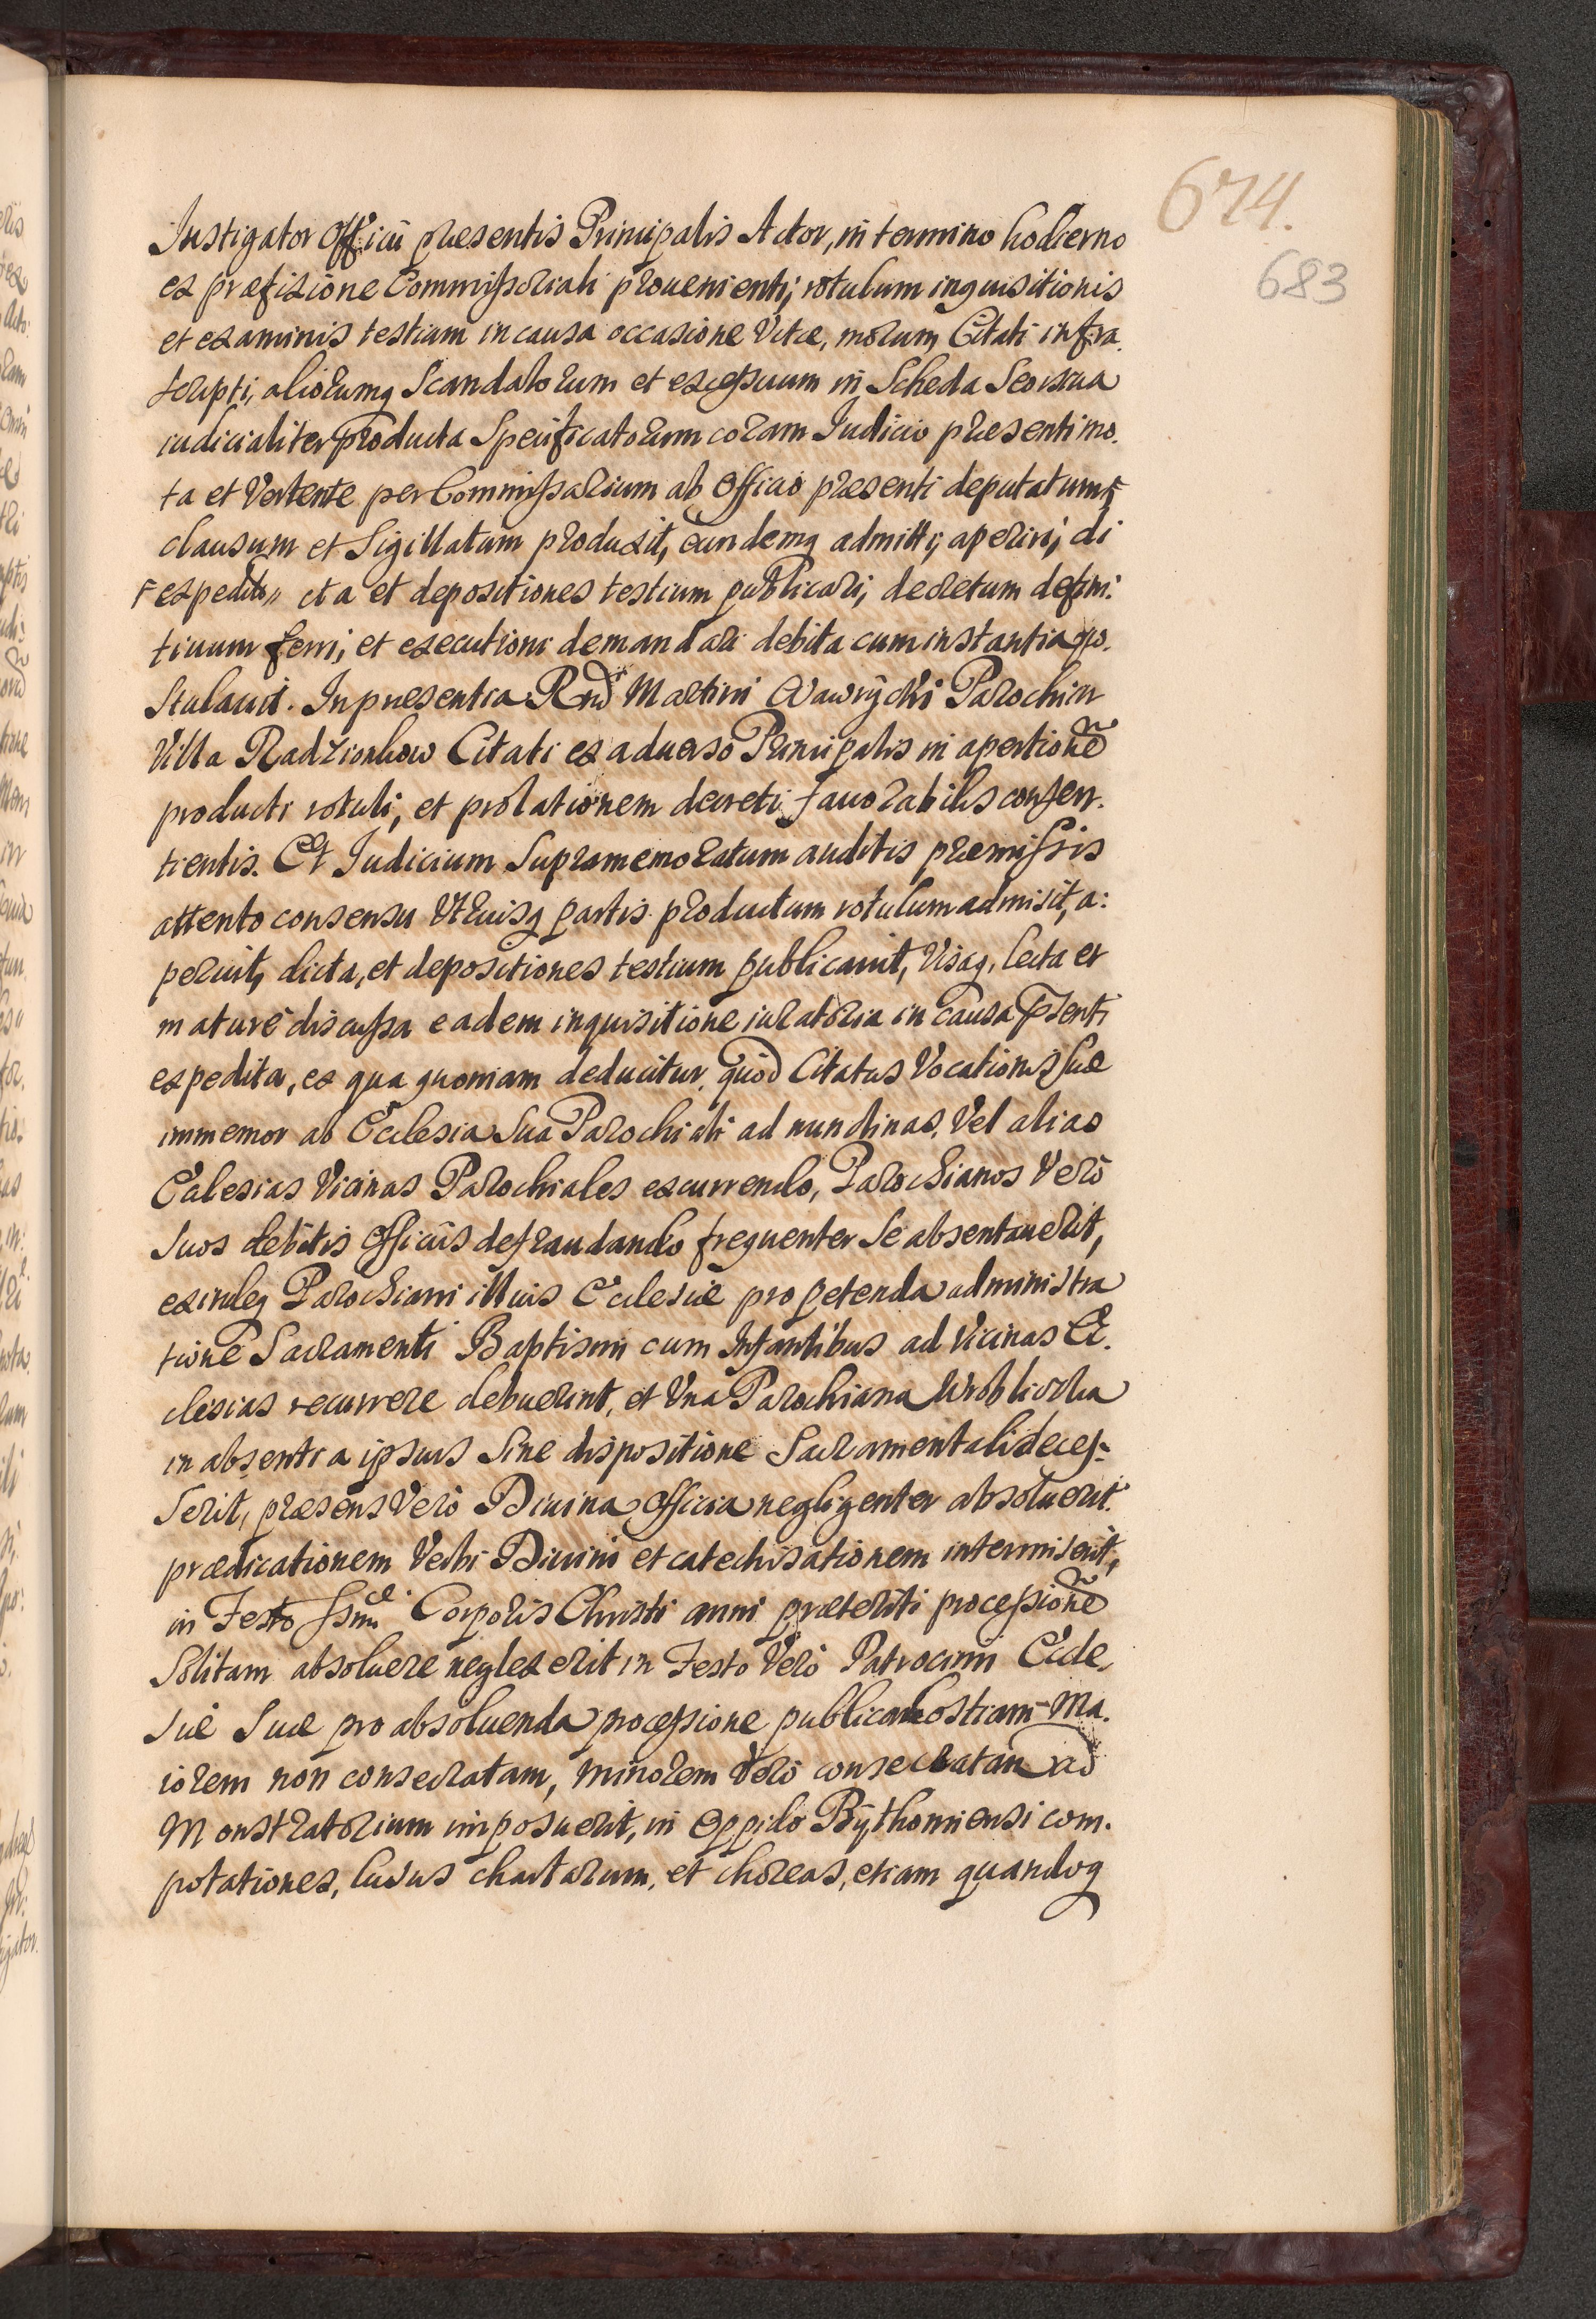 674.
683
Instigator Officii præsentis Principalis Actor, in termino hodierno
ex præfixione Commissoriali proueniente, rotulum inquisitionis
et examinis testium in causa occasione Vitæ, morum Citati infra
scripti, aliorumq Scandalorum et excessuum in Scheda Seorsiua
iudicialiter producta Specificatorum coram Iudicio præsenti mo.
ta et Vertente per Commissarium ab Officio præsenti deputatum,
clausum et Sigillatum produxit, eundemq admitti, aperiri, di
expeditū cta et depositiones testium publicari, decretum defini:
tiuum ferri, et executioni demandari debita cum instantia po.
stulauit. In præsentia Rndi Martini Wawrÿcki Parochi in
Villa Radzionkow Citati ex aduerso Principalis in apertionē
producti rotuli, et prolationem decreti fauorabilis consen.
tientis. Et Iudicium Supramemoratum auditis præmissis
attento consensu Vtriusq partis productum rotulum admisit, a:
peruit, dicta, et depositiones testium publicauit, Visaq, lecta et
mature discussa eadem inquisitione iuratoria in causa p̄senti
expedita, ex qua quoniam deducitur, quod Citatus Vocationis suæ
immemor ab Ecclesia Sua Parochiali ad nundinas, Vel alias
Ecclesias Vicinas Parochiales excurrendo, Parochianos Verò
Suos debitis Officiis defraudando frequenter Se absentauerit,
exindeq Parochiani illius Ecclesiæ pro petenda administra
tione Sacramenti Baptismi cum Infantibus ad Vicinas Ec.
clesias recurrere debuerint, et Vna Parochiana Wroblicka
in absentia ipsius Sine dispositione Sacramentali deces:
Serit, præsens Verò Diuina Officia negligenter absoluerit.
prædicationem Verbi Diuini et catechisationem intermiserit,
in Festo Ssmi Corporis Christi anni præteriti processionē
Solitam absoluere neglexerit in Festo Verò Patrocinii Eccle,
siæ Suæ pro absoluenda processione publica hostiam Ma.
iorem non consecratam, minorem Verò consecratam ad
Monstratorium imposuerit, in Oppido Bÿthomiensi com.
potationes, lusus chartarum, et choreas, etiam quandoq